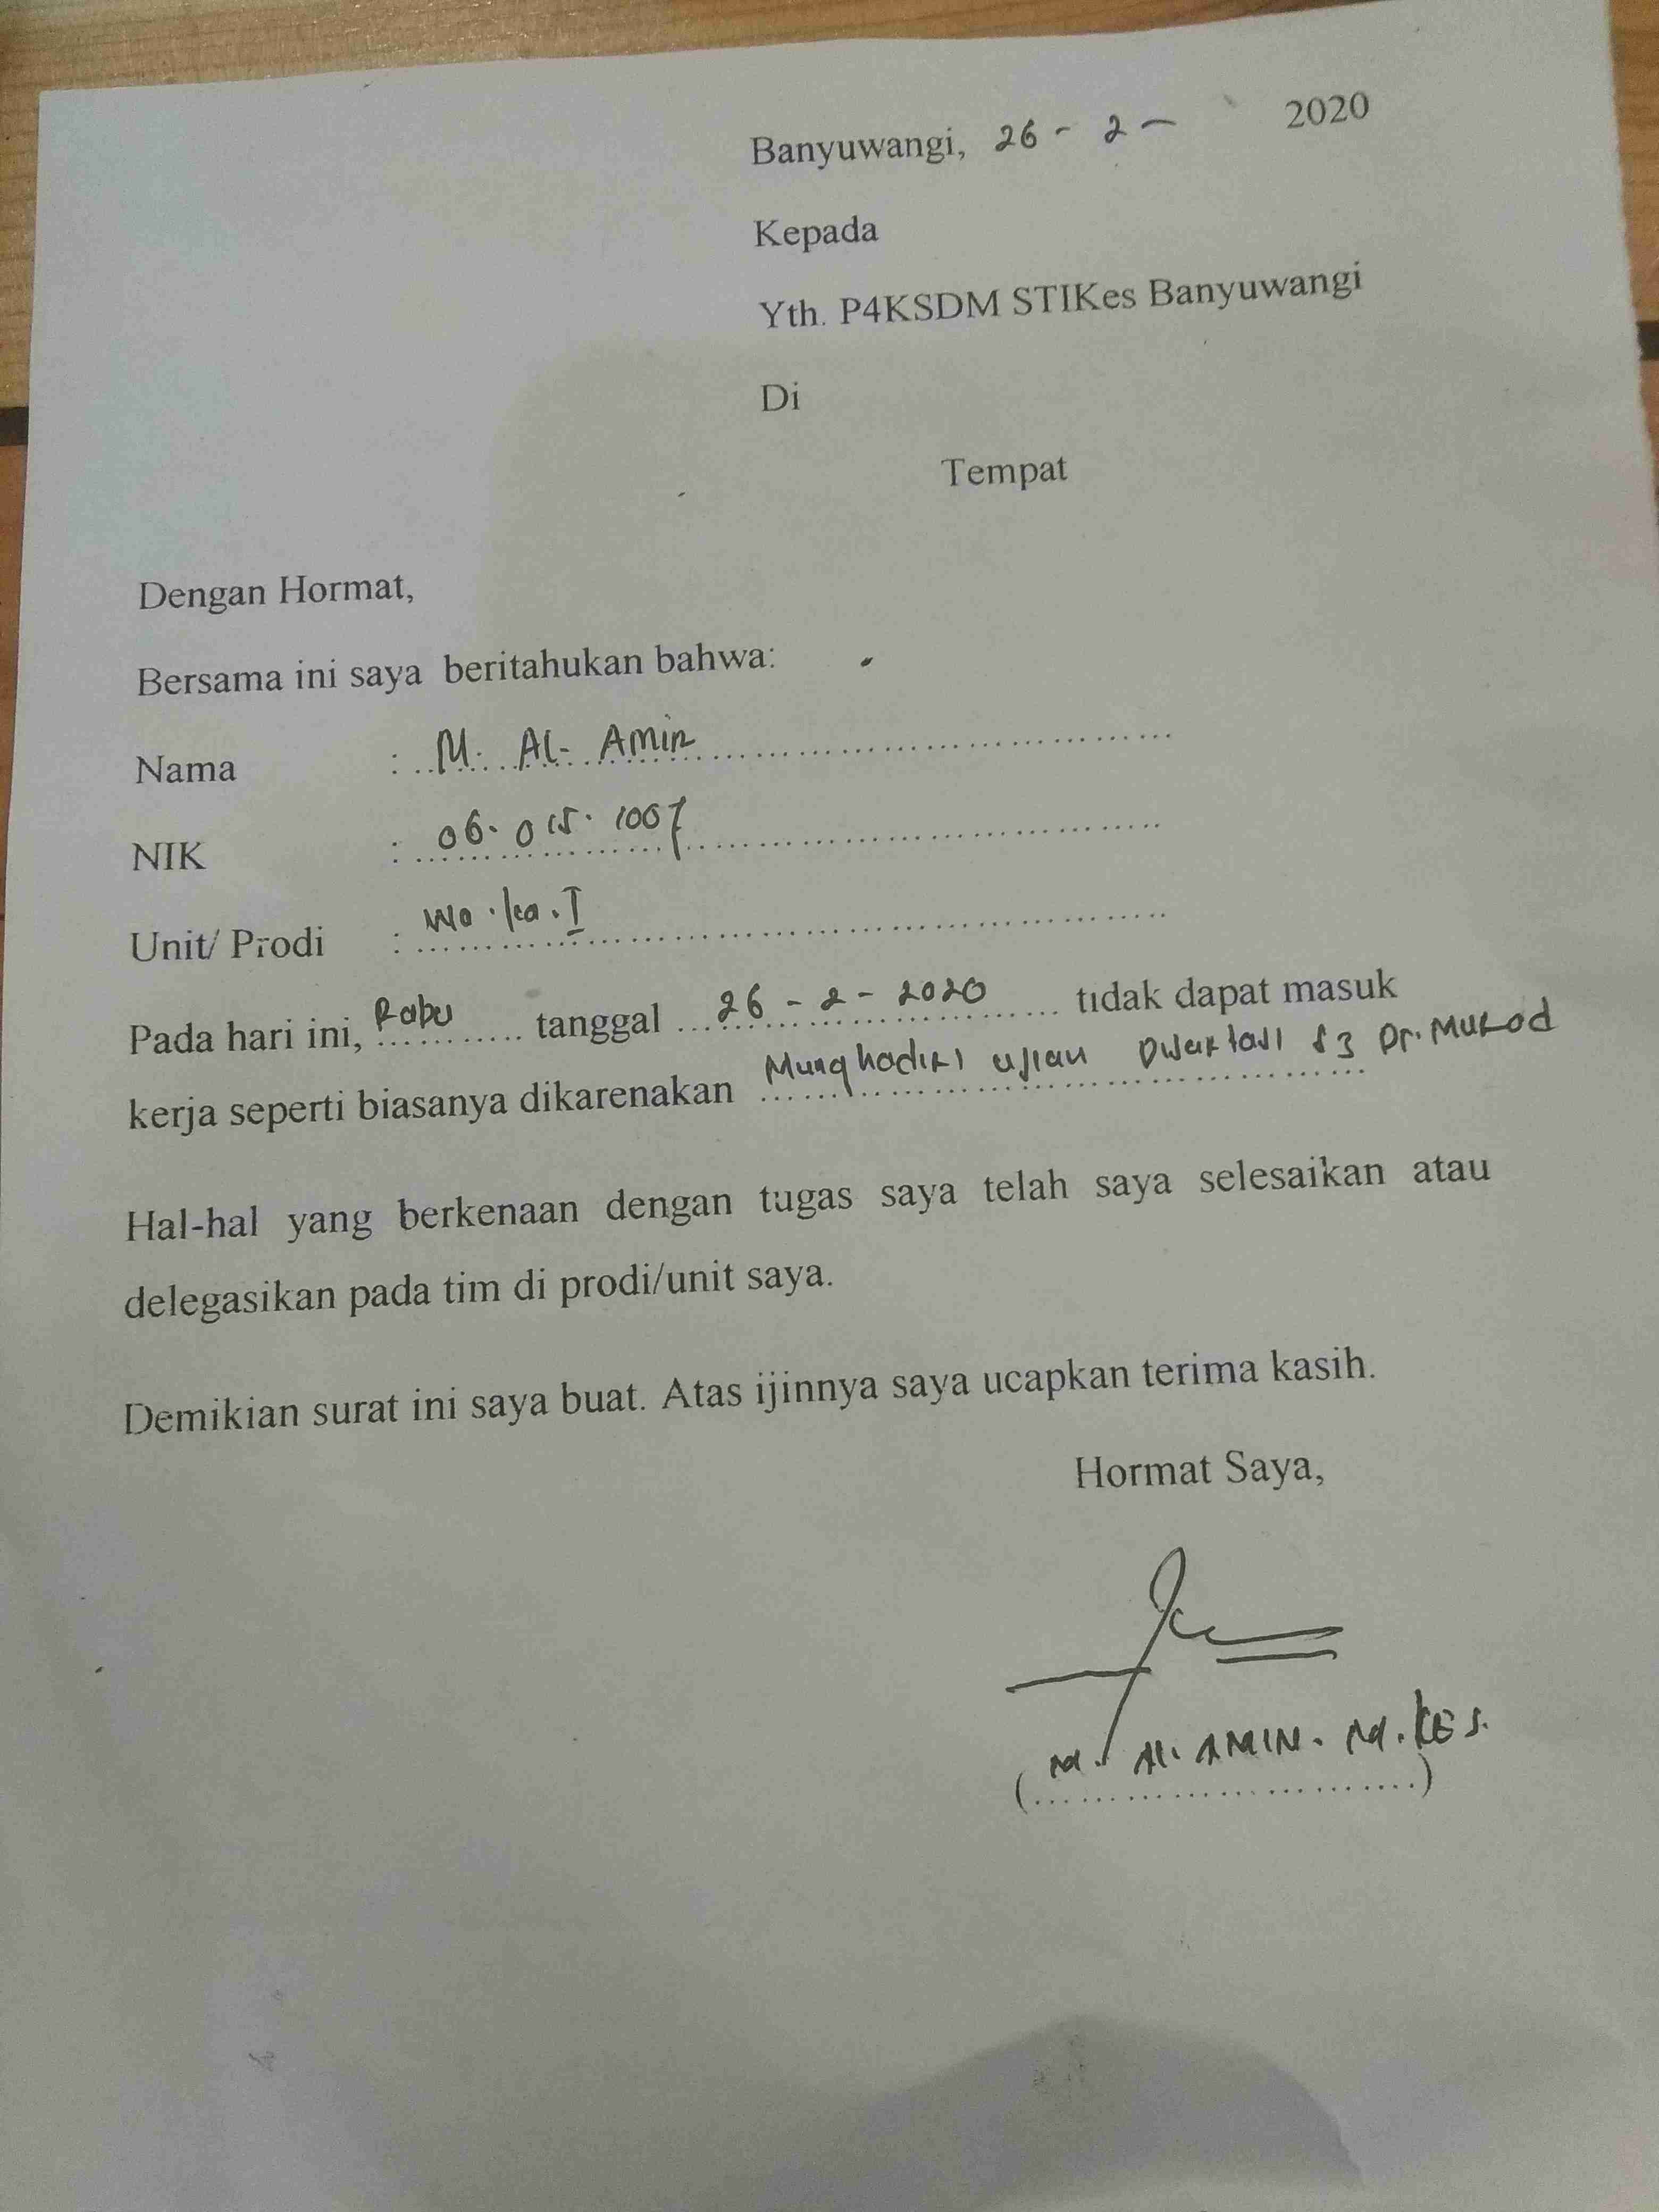 Banyuwangi, 26 - 2 - 2020
Kepada
Yth. P4KSDM STIKes Banyuwangi
Di
Tempat
Dengan Hormat,
Bersama ini saya beritahukan bahwa:
Nama : M. Al- Amin
NIK : 06. 015. 1007
Unit/ Prodi : Wa . ka . I
Pada hari ini, Rabu tanggal 26 - 2 - 2020 tidak dapat masuk
kerja seperti biasanya dikarenakan ujian S3 Dr. Murod
Hal-hal yang berkenaan dengan tugas saya telah saya selesaikan atau
delegasikan pada tim di prodi/unit saya.
Demikian surat ini saya buat. Atas ijinnya saya ucapkan terima kasih.
Hormat Saya,
(M. Al. AMIN. M. KES.)